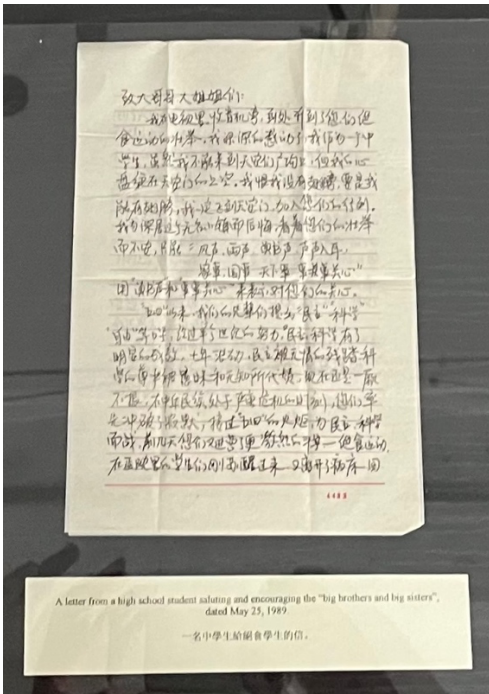 致大哥哥大姐姐们:
我在电视里,收音机旁,到处看到了您们绝
食运动的壮举,我深深的感动了,我作为一个中
学生,虽然我不能来到天安门广场上,但我的心
盘绕在天安门的上空。我恨我没有翅膀,要是我
能有翅膀,我一定飞到天安门,加入您们的行列。
我为深居这个无知的城市后悔,看着您们的壮举
而不安,只能:"风声,雨声,读书声,声声入耳,
家事,国事,天下事,事事关心"
用"读书声和事事关心"来表示对您们的关心。
"五四"以来,我们的先辈们提出"民主""科学"
"自由"等口号,经过半个世纪的努力,"民主科学有了
明显的成效。十年浩劫,民主被无情的践踏,科
学的被愚昧和无知所代替,现在还是一蹶
不振。在中华民族处于严重危机的时刻,您们率
先冲破了沉默,接过"五四"的火炬,为民主,科学
而战,前几天您们又进行了更—绝食运动,
在医院里的学生们刚苏醒过来,又离开了病床,回
A letter from a high school student saluting and encouraging the "big brothers and big sisters",
dated May 25, 1989.
一名中學生給絕食學生的信。